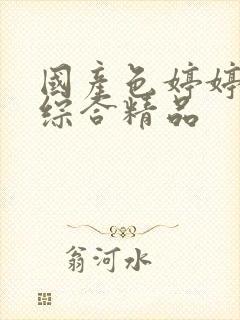 國產色婷婷
综合精品
翁河水